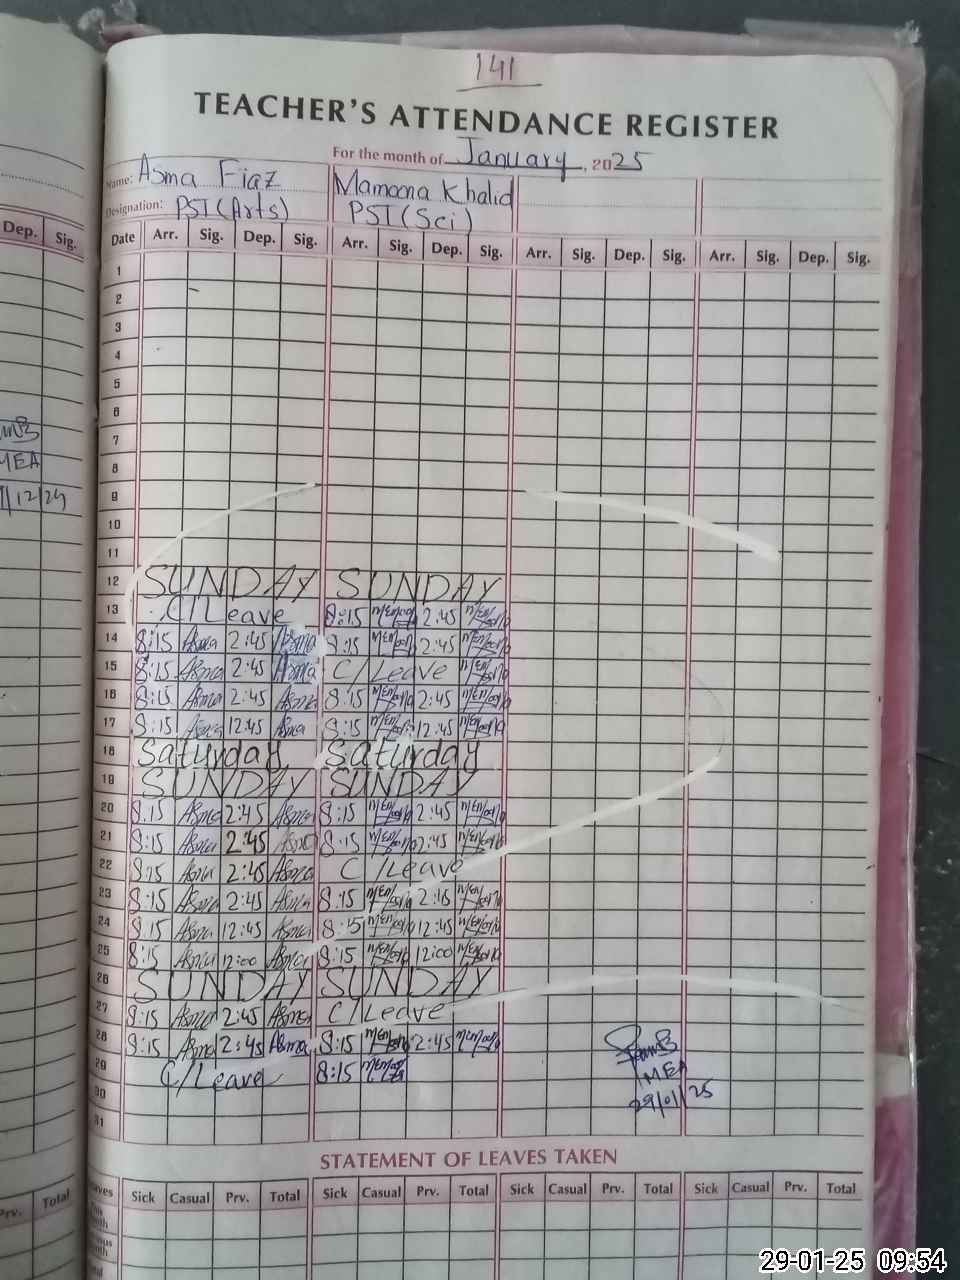 141
TEACHER'S ATTENDANCE REGISTER
For the month of January, 2025
Name: Asma Fiaz Mamoona Khalid
Designation: PST(Arts) PST(Sci)
Dep. Sig.
Date Arr. Sig. Dep. Sig. Arr. Sig. Dep. Sig. Arr. Sig. Dep. Sig. Arr. Sig. Dep. Sig.
1
2
3
4
5
6
7
8
MEA
9
/12/24
10
11
12 SUNDAY SUNDAY
13 C/Leave 8:15 2:45
14 8:15 Asma 2:45 Asma 8:15 2:45
15 8:15 Asma 2:45 Asma C/Leave
16 8:15 Asma 2:45 Asma 8:15 2:45
17 8:15 Asma 12:45 Asma 8:15 12:45
18 Saturday Saturday
19 SUNDAY SUNDAY
20 8:15 Asma 2:45 Asma 8:15 2:45
21 8:15 Asma 2:45 Asma 8:15 2:45
22 8:15 Asma 2:45 Asma C/Leave
23 8:15 Asma 2:45 Asma 8:15
24 8:15 Asma 12:45 Asma 8:15 12:45
25 8:15 Asma 12:00 Asma 8:15 12:00
26 SUNDAY SUNDAY
27 8:15 Asma 2:45 Asma C/Leave
28 8:15 Asma 2:45 Asma 8:15 2:45
29 C/Leave 8:15
MEA
30
29/01/25
31
STATEMENT OF LEAVES TAKEN
Sick Casual Prv. Total Sick Casual Prv. Total Sick Casual Prv. Total Sick Casual Prv. Total
Prv. Total
29-01-25 09:54